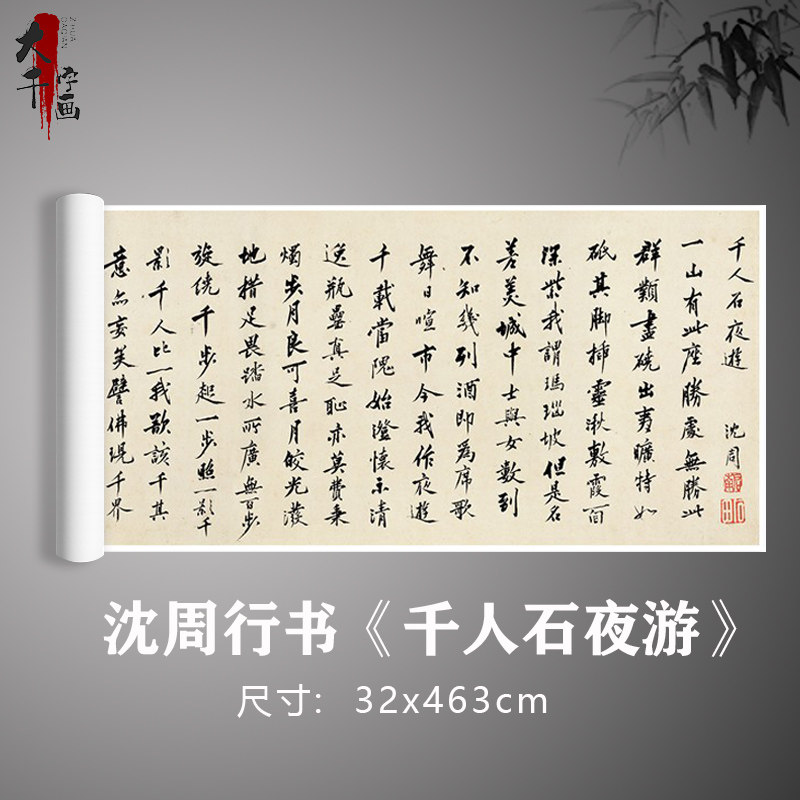 大千字画
ZIHUA
DAQAN
千人石夜遊
沈周
一山有此座勝處無勝此
群類盡硗出夷曠特如
砥其脚插靈湫敷霞面
深紫我謂瑪瑙坡但是名
差美城中士與女數到
不知幾列酒即為席歌
舞日喧市今我作夜遊
千載當隗始澄懷示清
逸瓶罍真足恥亦莫費秉
燭步月良可喜月皎光潑
地措足畏踏水所廣無百步
旋繞千步起一步照一影千
影千人比一我欲該千其
意亦妄矣譬佛現千界
沈周行书《千人石夜游》
尺寸：32x463cm